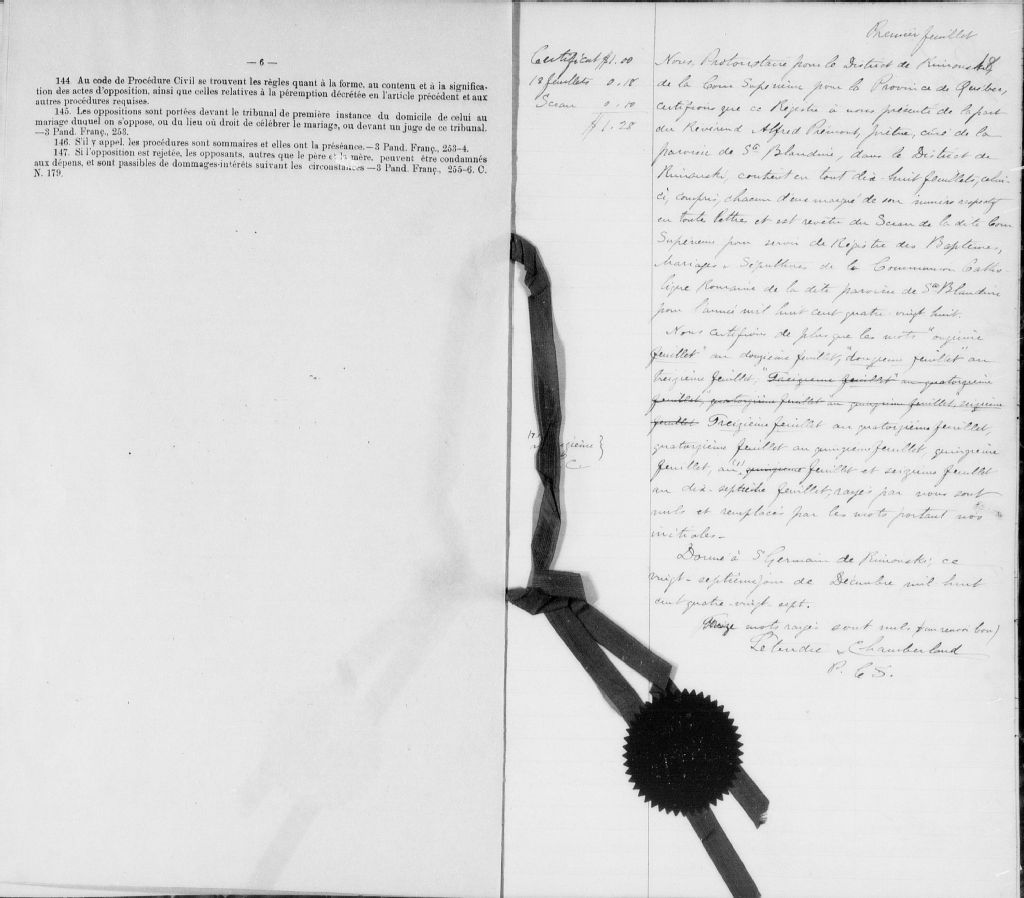 — 6 —
144 Au code de Procédure Civil se trouvent les règles quant à la forme, au contenu et à la significa-
tion des actes d'opposition, ainsi que celles relatives à la péremption décrétée en l'article précédent et aux
autres procédures requises.
145. Les oppositions sont portées devant le tribunal de première instance du domicile de celui au
mariage duquel on s'oppose, ou du lieu où droit de célébrer le mariage, ou devant un juge de ce tribunal.
—3 Pand. Franç., 253.
146. S'il y appel, les procédures sont sommaires et elles ont la préséance.—3 Pand. Franç., 253-4.
147. Si l'opposition est rejetée, les opposants, autres que le père et la mère, peuvent être condamnés
aux dépens, et sont passibles de dommages-intérêts suivant les circonstances—3 Pand. Franç., 255-6. C.
N. 179.
Premier feuillet
Certificat $1.00
18 feuillets 0.18
Sceau 0.10
$1.28
Nous, Protonotaire pour le District de Rimouski
de la Cour Supérieure pour la Province de Québec,
certifions que ce Registre à nous présenté de la part
du Révérend Alfred Prémont, prêtre, curé de la
paroisse de Ste Blandine, dans le District de
Rimouski, contient en tout dix-huit feuillets, celui-
ci, compris, chacun d'eux marqué de son numéro respectif
en toute lettre et est revêtu du Sceau de la dite Cour
Supérieure pour servir de Régistre des Baptêmes,
Mariages & Sépultures de la Communion Catho-
lique Romaine de la dite paroisse de Ste Blandine
pour l'année mil huit cent quatre-vingt huit.
Nous certifions de plus que les mots "onzième
feuillet" au douzième feuillet, "douzième feuillet" au
treizième feuillet, "Treizième feuillet" au quatorzième
feuillet, "quatorzième feuillet au quinzième feuillet, seizième
feuillet Treizième feuillet au quatorzième feuillet,
quatorzième feuillet au quinzième feuillet, quinzième
feuillet, au (1) quinzième feuillet et seizième feuillet
au dix-septième feuillet, rayés par nous sont
nuls et remplacés par les mots portant nos
initiales.
Donné à St Germain de Rimouski, ce
vingt-septième jour de Décembre mil huit
cent quatre-vingt-sept.
Treize mots rayés sont nuls (un renvoi bon)
Letendre & Chamberland
P. C. S.